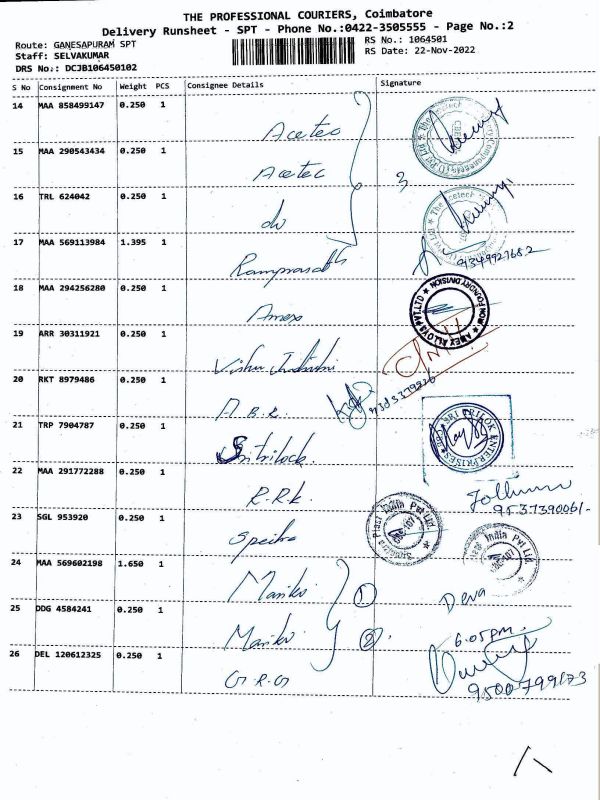 THE PROFESSIONAL COURIERS, Coimbatore
Delivery Runsheet - SPT - Phone No.:0422-3505555 - Page No.:2
Route: GANESAPURAM SPT
RS No.: 1064501
Staff: SELVAKUMAR
RS Date: 22-Nov-2022
DRS No.: DCJB106450102
S No Consignment No Weight PCS Consignee Details Signature
14 MAA 858499147 0.250 1
Acetec
15 MAA 290543434 0.250 1
Acetec
3
16 TRL 624042 0.250 1
do
17 MAA 569113984 1.395 1
Ramprasath
9349927682
18 MAA 294256280 0.250 1
Amex
AMEX ALLOYS PVT.LTD
FOUNDRY DIVISION
19 ARR 30311921 0.250 1
20 RKT 8979486 0.250 1
A.B.R.
21 TRP 7904787 0.250 1
Sritrilock.
SRI TRILOK ENTERPRISES
22 MAA 291772288 0.250 1
R.R.K.
9537390061-
23 SGL 953920 0.250 1
Plast India Pvt Ltd
India Pvt Ltd.
24 MAA 569602198 1.650 1
Mariko 1
Deva
25 DDG 4584241 0.250 1
Mariko 2
6.05pm.
26 DEL 120612325 0.250 1
G.R.G
9500799173